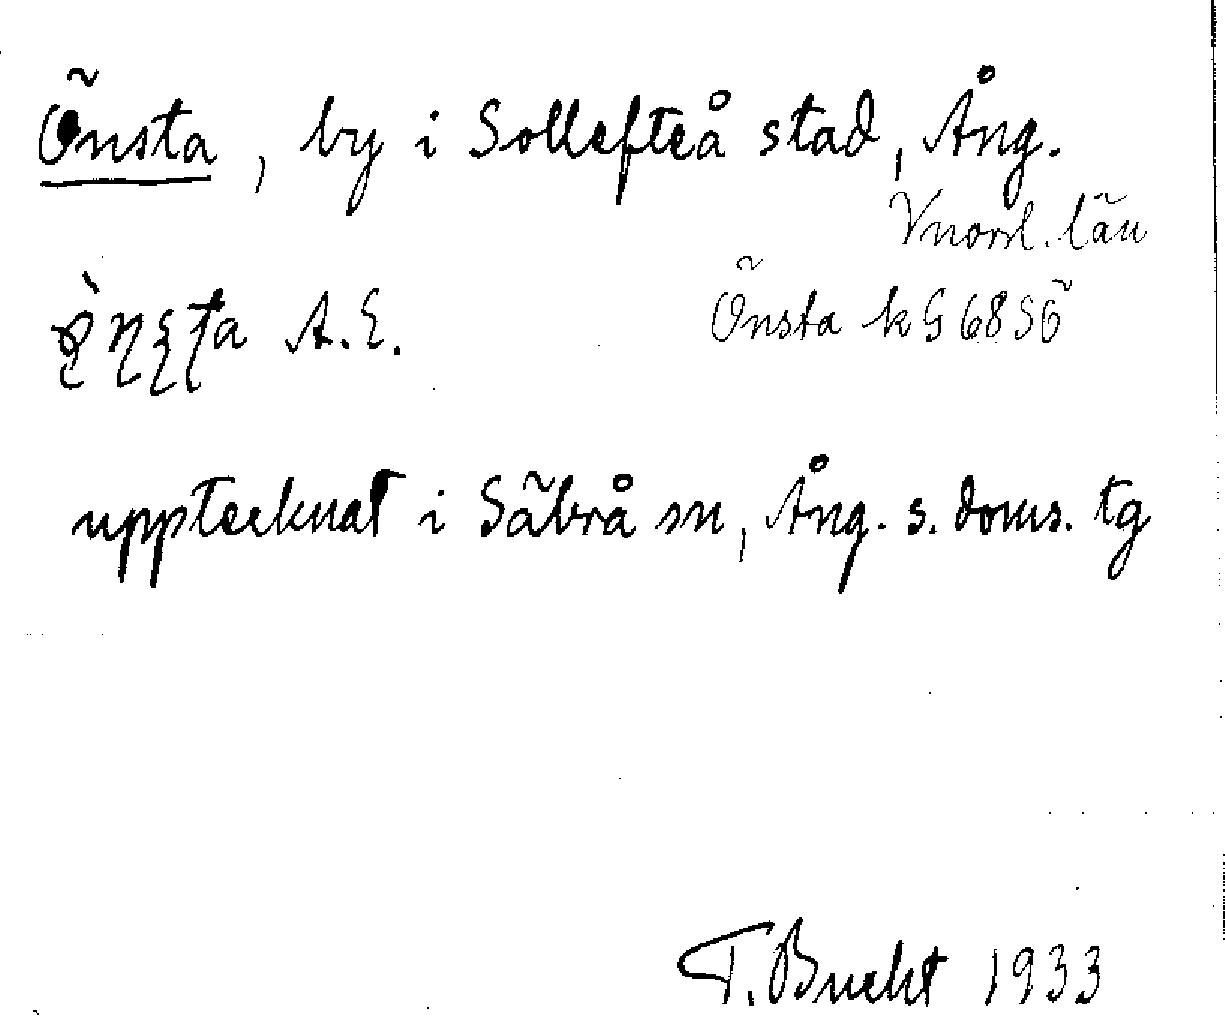 Önsta, by i Sollefteå stad, Ång.
Vnorrl. län
Önsta kG 68 SÖ
A.E.
upptecknat i Säbrå sn, Ång. s. doms. tg
T. Bucht 1933